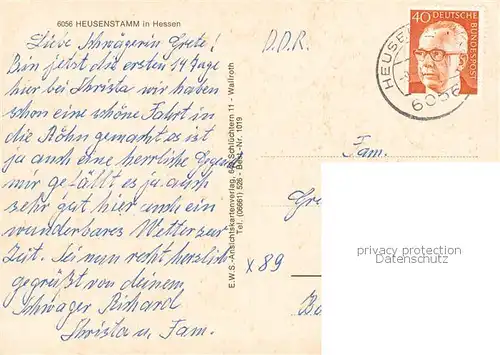 6056 HEUSENSTAMM in Hessen
Liebe Schwägerin Grete!
Bin jetzt die ersten 14 Tage
hier bei Christa wir haben
schon eine schöne Fahrt in
die Röhn gemacht es ist
ja auch eine herrliche Gegend
mir gefällt es ja auch
sehr gut hier und ein
wunderbares Wetter zur
Zeit. Sei nun recht herzlich
gegrüßt von deinem
Schwager Richard
Christa u. Fam.
E.W.S.-Ansichtskartenverlag, 649 Schlüchtern 11 - Wallroth
Tel. (06661) 526 - Best.-Nr. 1019
D.D.R.
40 DEUTSCHE
BUNDESPOST
HEUSE
6056
Fam.
Gre
x 89
Ba
privacy protection
Datenschutz